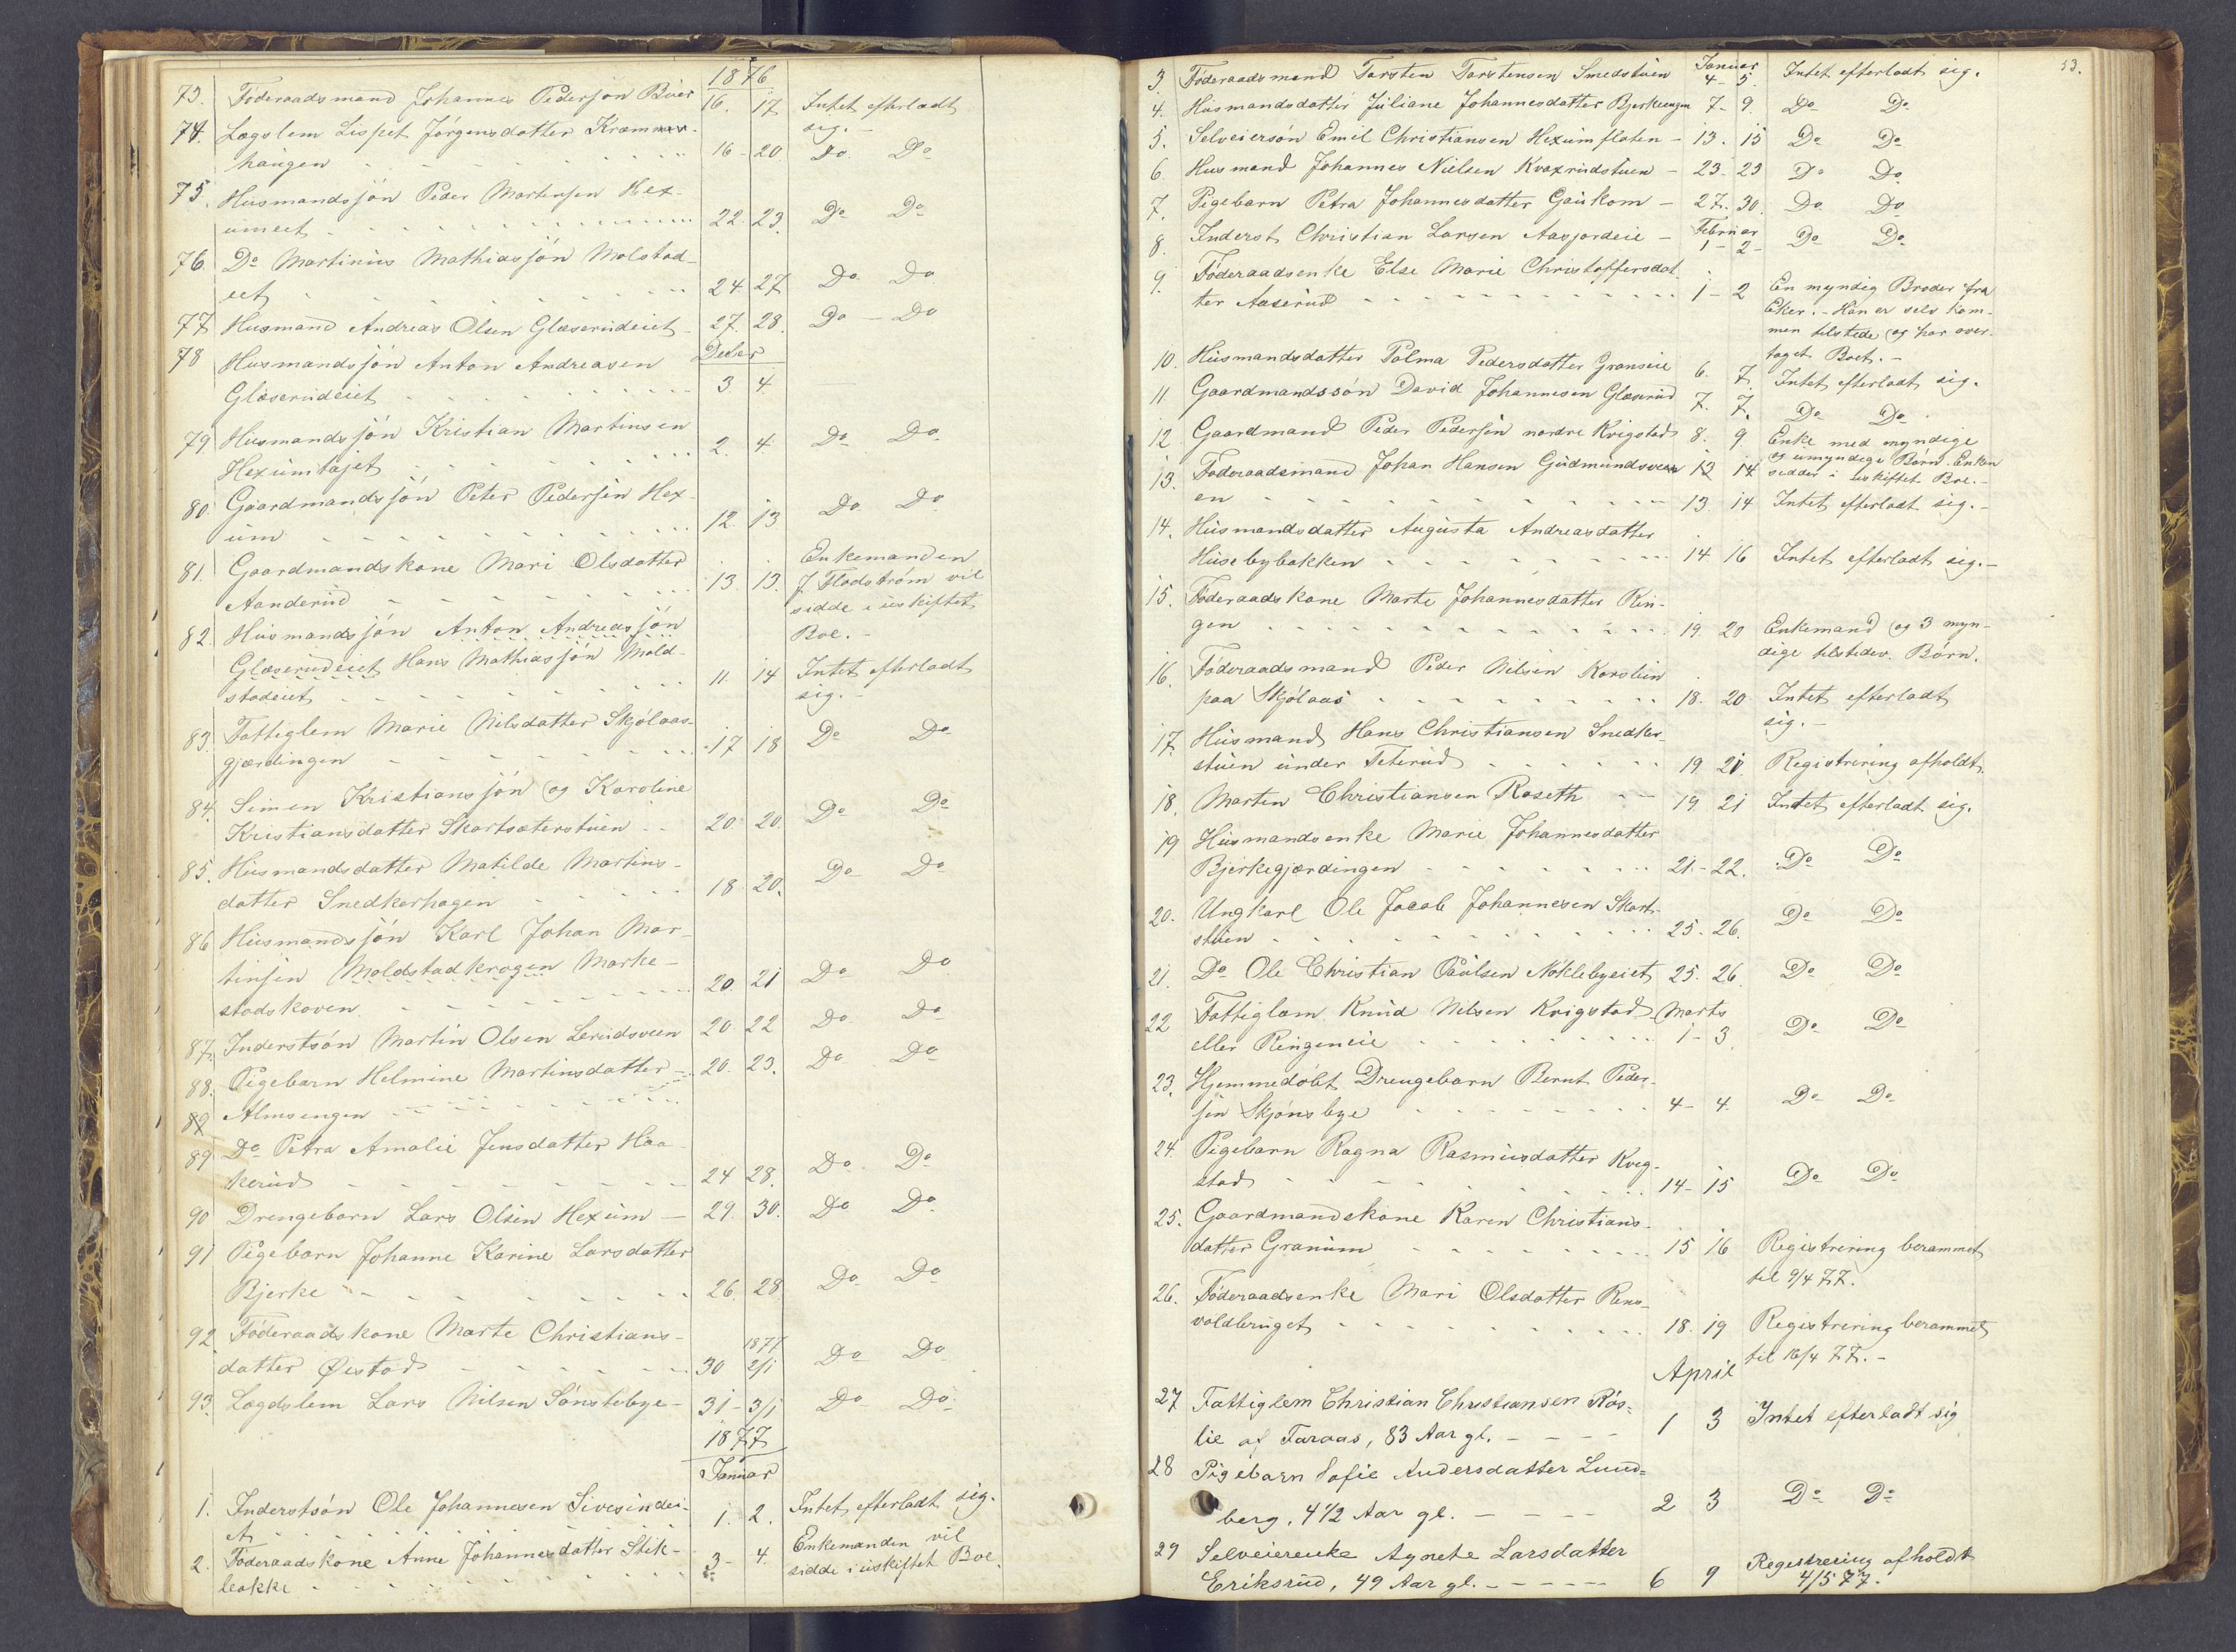 1876
73. Föderaadsmand Johannes Pedersen 16. 17 Intet efterladt
sig. -
74. Lægslem Lispet Jörgensdatter Krammer-
haugen 16 - 20 Do Do
75. Husmandssön Peder Martinsen Hex-
umeet 22. 23. Do Do
76. Do Martinus Mathiassön Molstad-
eet 24. 27 Do Do
77 Husmand Andreas Olsen Glæserudeiet 27. 28. Do - Do
Decber
78 Husmandssön Anton Andreasen
Glæserudeiet 3 4.
79. Husmandssön Kristian Martinsen
Hexumtajet 2. 4. Do Do
80. Gaardmandssön Peter Pedersen Hex-
um 12. 13 Do Do
81. Gaardmandskone Mari Olsdatter
Aanderud 13 13. Enkemanden
J. Flodström vil
sidde i uskiftet
Boe. -
82. Husmandssön Anton Andreassön
Glæserudeiet Hans Mathiassön Mold-
stadeiet 11. 14 Intet efterladt
sig. -
83. Fattiglem Marie Nilsdatter Skjölaas-
gjærdingen 17 18 Do Do
84. Simen Kristianssön og Karoline
Kristiansdatter Skartsæterstuen 20. 20. Do Do
85. Husmandsdatter Matilde Martins-
datter Snedkerhagen 18. 20. Do Do
86 Husmandssön Karl Johan Mar-
tinsen Moldstadkrogen Marke-
stadskoven 20. 21 Do Do
87. Inderstsön Martin Olsen Lerudsveen 20. 22 Do Do
88. Pigebarn Helmine Martinsdatter - 20. 23. Do Do
89 Almsengen
89 Do Petra Amalie Jensdatter Haa-
kerud 24 28. Do Do
90 Drengebarn Lars Olsen Hexum - 29. 30. Do Do
91 Pigebarn Johanne Karine Larsdatter
Bjerke 26. 28. Do Do
92 Föderaadskone Marte Christians-
datter Øistad 30 1877 2/1 Do Do
93. Lægdslem Lars Nilsen Sönstebye - 31 - 3/1 Do Do
1877
Januar
1. Inderstsön Ole Johannesen Sivesindei-
et 1. 2. Intet efterladt sig.
2. Föderaadskone Anne Johannesdatter Stik-
bakke 3 - 4. Enkemanden vil
sidde i uskiftet Boe.
53.
Januar
3. Föderaadsmand Torsten Torstensen Smedstuen 4 - 5. Intet efterladt sig.
4. Husmandsdatter Juliane Johannesdatter Bjerkeengen 7 - 9. Do Do
5. Selveiersön Emil Christiansen Hexumflaten - 13. 15 Do Do
6. Husmand Johannes Nielsen Kvaxrudstuen - 23. 23 Do Do
7. Pigebarn Petra Johannesdatter Gaukom - 27. 30. Do Do
Februar
8. Inderst Christian Larsen Aasjordeie - 1 - 2 - Do Do
9. Föderaadsenke Else Marie Christoffersdat-
ter Aaserud 1 - 2 En myndig Broder fra
Eker. - Han er selv kom-
men tilstede og har over-
taget Boet. -
10. Husmandsdatter Palma Pedersdatter Granseie 6. 7. Intet efterladt sig.
11. Gaardmandssön David Johannesen Glæserud 7. 7. Do Do
12 Gaardmand Peder Pedersen nordre Krigstad 8. 9. Enke med myndige
og umyndige Börn. Enken
sidder i uskiftet Boe. -
13. Föderaadsmand Johan Hansen Gudmundsveen 13 14
en 13. 14 Intet efterladt sig. -
14. Husmandsdatter Augusta Andreasdatter
Husebybakken 14. 16 Intet efterladt sig. -
15. Föderaadskone Marte Johannesdatter Rin-
gen 19. 20 Enkemand og 3 myn-
dige tilstedev. Börn.
16. Föderaadsmand Peder Nilsen Karolein
paa Skjölaas 18. 20. Intet efterladt
sig. -
17. Husmand Hans Christiansen Snedker-
stuen under Teterud 19. 21. Registrering afholdt.
18. Marten Christiansen Roseth - - 19 21 Intet efterladt sig.
19 Husmandsenke Marie Johannesdatter
Bjerkegjærdingen 21 - 22. Do Do
20. Ungkarl Ole Jacob Johannesen Skart-
stuen 25. 26. Do Do
21. Do Ole Christian Paulsen Nöklebyeiet 25. 26. Do Do
22 Fattiglam Knud Nilsen Krigstad Marts
eller Ringeneie 1 - 3. Do Do
23. Hjemmedöbt Drengebarn Bernt Peder-
sen Skjönsbye 4 - 4. Do Do
24. Pigebarn Ragna Rasmusdatter Kveg-
stad 14 - 15 Do Do
25. Gaardmandskone Karen Christians-
datter Granum 15 16 Registrering berammet
til 9/4 77.
26. Föderaadsenke Mari Olsdatter Rens-
voldbruget 18. 19 Registrering berammet
til 16/4 77. -
April
27 Fattiglem Christian Christiansen Rös-
lie af Faraas, 83 Aar gl. - - - - 1 3 Intet efterladt sig
28 Pigebarn Sofie Andersdatter Lund-
berg, 4 1/2 Aar gl. - - - - 2 3 Do Do
29 Selveierenke Agnete Larsdatter
Eriksrud, 49 Aar gl. - - - - - 6 9 Registrering afholdt
4/5 77.